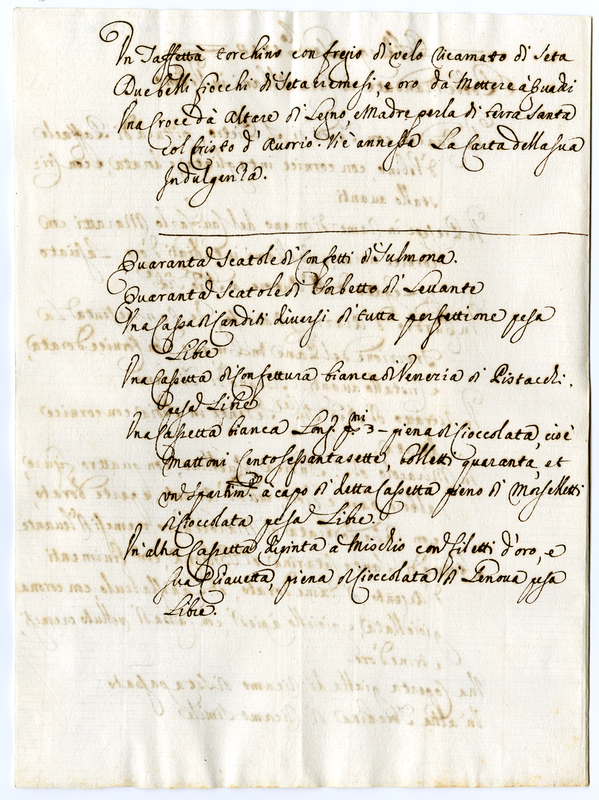 Un Taffettà torchino con fregio di velo ricamato di seta
Due belli fiocchi di seta cremesi, e oro da mettere à quadri
Una Croce dà Altare di Legno, e Madre perla di terra santa
col Cristo d'Avorio. Vi è annessa La Carta della sua
Indulgenza.
Quaranta Scatole di Confetti di Sulmona.
Quaranta Scatole di Sorbetto di Levante
Una Cassa di Canditi diversi di tutta perfettione pesa
Libre
Una Cassetta di Confettura bianca di Venezia di Pistacchi.
pesa Libre
Una Cassetta bianca Long. pmi 3 - piena di Cioccolata, cioè
Mattoni Centosessantasette, bolletti quaranta, et
un spartimto à capo di detta Cassetta pieno di Morselletti
di Cioccolata pesa Libre.
Un'altra Cassetta dipinta à Mischio con filetti d'oro, e
sua Chiavetta, piena di Cioccolata di Genova pesa
Libre.